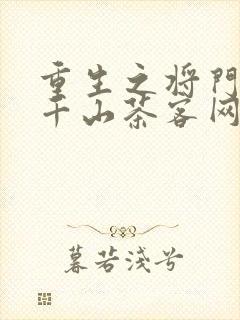 重生之将門
千山茶客网
暮若浅兮